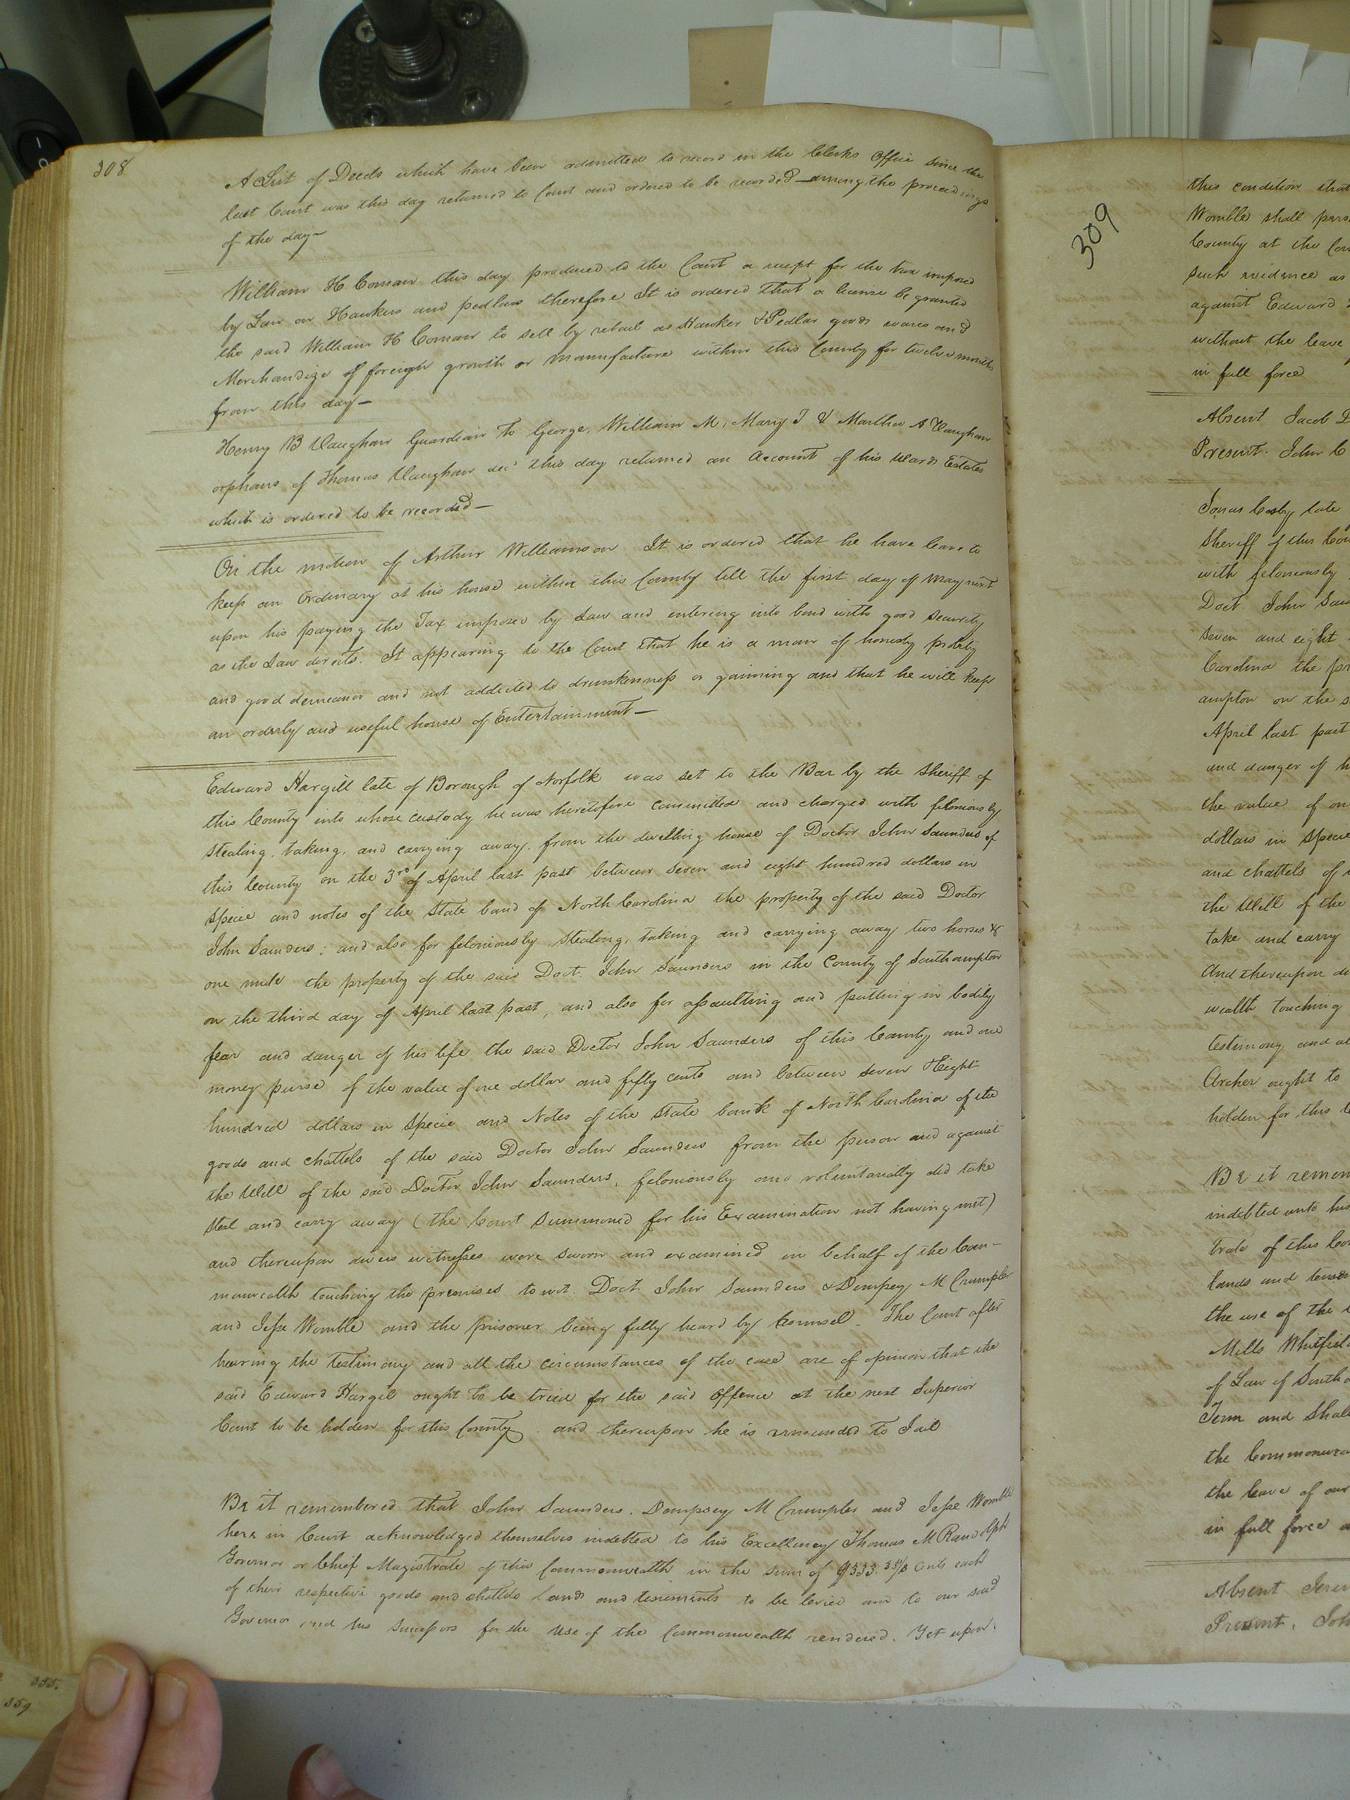 308
A List of Deeds which have been admitted to record in the Clerks Office since the
last Court was this day returned to Court and ordered to be recorded among the proceedings
of the day
William H Coman this day produced to the Court a recept for the tax imposed
by Law on Hawkers and pedlars therefore It is ordered that a license be granted
the said William H Coman to sell by retail as Hawker & Pedlar goods wares and
Merchandize of foreign growth or manufacture within this County for twelve months
from this day
Henry B Vaughan Guardian to George, William M, Mary T & Martha A Vaughan
orphans of Thomas Vaughan decd this day returned an Account of his Wards Estates
which is ordered to be recorded
On the motion of Arthur Williamson It is ordered that he have leave to
keep an Ordinary at his house within this County till the first day of May next
upon his paying the Tax imposed by Law and entering into bond with good security
as the Law directs. It appearing to the Court that he is a man of honesty probity
and good demeanor and not addicted to drunkenness or gaiming and that he will keep
an orderly and useful house of Entertainment
Edward Hargill late of Borough of Norfolk was set to the Bar by the Sheriff of
this County into whose custody he was heretofore committed and charged with feloniously
stealing, taking, and carrying away, from the dwelling house of Doctor John Saunders of
this County on the 3rd of April last past between seven and eight hundred dollars in
specie and notes of the State band of North Carolina the property of the said Doctor
John Saunders; and also for feloniously stealing, taking and carrying away two horses &
one mule the property of the said Doct. John Saunders in the County of Southampton
on the third day of April last past, and also for assaulting and putting in bodily
fear and danger of his life the said Doctor John Saunders of this County and one
money purse of the value of one dollar and fifty cents and between seven & Eight
hundred dollars in specie and Notes of the State bank of North Carolina of the
goods and chattels of the said Doctor John Saunders from the person and against
the Will of the said Doctor John Saunders, feloniously and voluntarially did take
steal and carry away (the Court summoned for his Examination not having met)
and thereupon divers witnesses were sworn and examined on behalf of the Com-
monwealth touching the premises towit. Doct John Saunders & Dempsey M Crumpler
and Jesse Womble and the prisoner being fully heard by Counsel. The Court after
hearing the testimony and all the circumstances of the case are of opinion that the
said Edward Hargil ought to be tried for the said offence at the next Superior
Court to be holden for this County and thereupon he is remanded to Jail
Be it remembered that John Saunders, Dempsey M Crumpler and Jesse Womble
here in Court acknowledged themselves indebted to his Excellency Thomas M Randolph
Governor or Chief Magistrate of this Commonwealth in the sum of cents each
of their respective goods and chattels lands and tenements to be levied and to our said
Governor and his Successors for the use of the Commonwealth rendered. Yet upon
309
this condition that
Womble shall pers
County at the
such evidence as
against Edward
without the leave
in full force
Absent Jacob
Present. John C
Jonas Cosby late
Sheriff of this Cou
with feloniously
Doct John Sau
seven and eight
Carolina the pr
ampton on the s
April last past
and danger of h
the value of on
dollars in specie
and chattels of
the Will of the
take and carry
And thereupon di
wealth touching
testimony and al
Archer ought to
holden for this C
Be it remem
indebted unto his
trate of this Co
lands and tenem
the use of the
Mills Whitfield
of Law of South
Term and Shall
the Commonwea
the leave of our
in full force a
Absent Jere
Present, Joh
355.
359